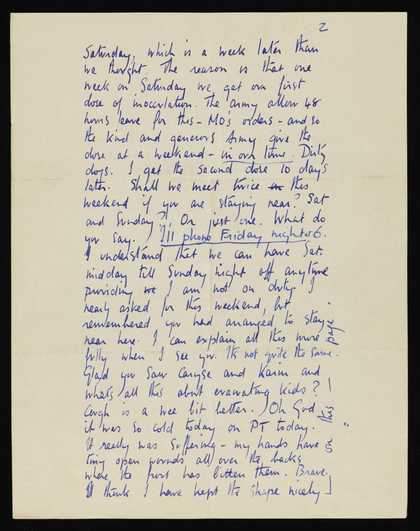 2
Saturday, which is a week later than
we thought. The reason is that one
week on Saturday we get our first
dose of inoculation. The army allow 48
hours leave for this - MO's orders - and so
the kind and generous Army give the
dose at a weekend - in our time. Dirty
dogs. I get the second dose 10 days
later. Shall we meet twice this
weekend if you are staying near? Sat
and Sunday? Or just one. What do
you say. I'll phone Friday night at 6.
I understand that we can have Sat.
midday till Sunday night off anytime
providing we I am not on duty. I
nearly asked for this weekend, but
remembered you had arranged to stay
near here. I can explain all this more
fully when I see you. It's not quite the same.
Glad you saw and Karin and
whats all this about evacuating kids?
Cough is a wee bit better. Oh God
it was so cold today on PT today.
It really was suffering - my hands have
tiny open wounds all over the backs
where the frost has bitten them. Brave.
I think I have kept the shape nicely
this page